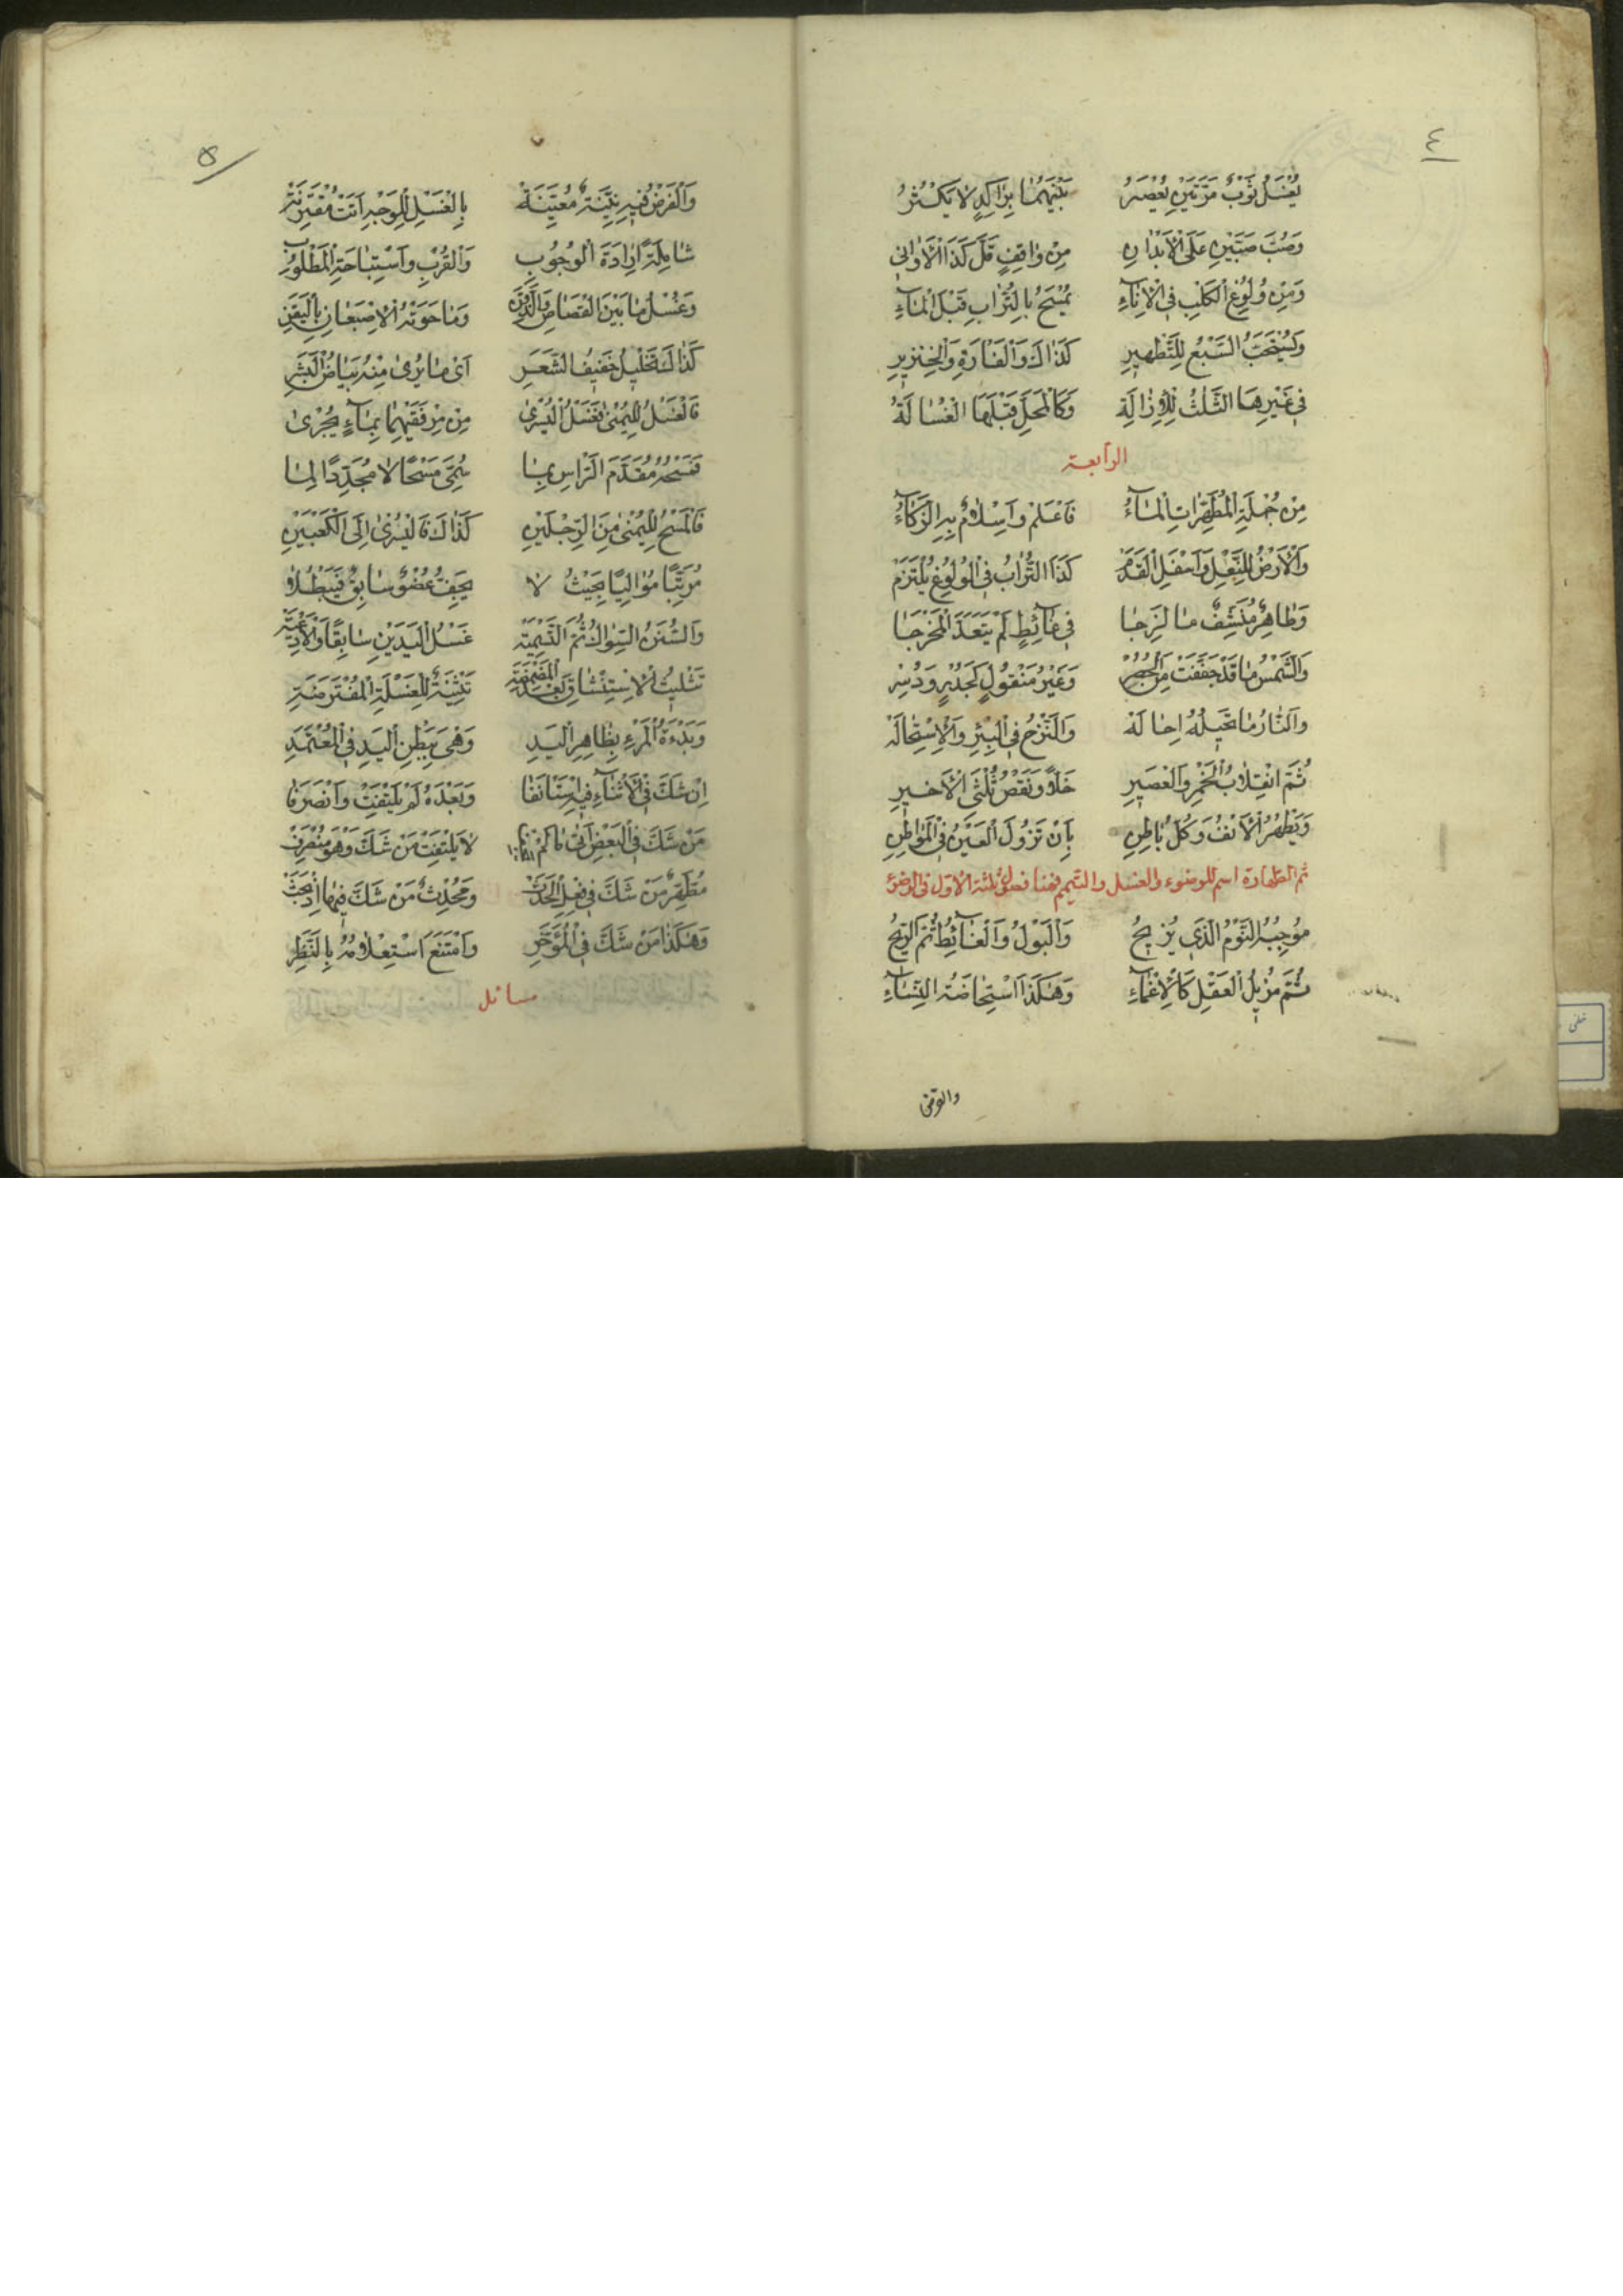 ٤
يُغْسَلُ ثَوْبٌ مَرَّتَيْنِ يُعْصَرُ بَيْنَهُمَا بِرَاكِدٍ لَا يَكْثُرُ
وَصُبَّ صَبَّتَيْنِ عَلَى الْأَبْدَانِ مِنْ وَاقِفٍ قَلَّ كَذَا الْأَوَانِى
وَمِنْ وُلُوغِ الْكَلْبِ فِى الْإِنَاءِ يُمْسَحُ بِالتُّرَابِ قَبْلَ الْمَاءِ
وَيُسْتَحَبُّ السَّبْعُ لِلتَّطْهِيرِ كَذَاكَ وَالْفَارَةِ وَالْخِنْزِيرِ
فِى غَيْرِهَا الثَّلْثُ لِلْإِزَالَةِ وَكَالْمَحَلِّ قَبْلَهَا الْغُسَالَةُ
الرابعة
مِنْ جُمْلَةِ الْمُطَهِّرَاتِ الْمَاءُ فَاعْلَمْ وَإِسْلَامٌ بِهِ الزَّكَاءُ
وَالْأَرْضُ لِلنَّعْلِ وَأَسْفَلِ الْقَدَمْ كَذَا التُّرَابُ فِى الْوُلُوغِ يُلْتَزَمْ
وَطَاهِرٌ مُنَشِّفٌ مَا لَزِجَا فِى غَائِطٍ لَمْ يَتَعَدَّ الْمَخْرَجَا
وَالشَّمْسُ مَا قَدْ جَفَّفَتْ مِنْ الْحُصُرْ وَغَيْرُ مَنْقُولٍ كَجُدْرٍ وَدُسُرْ
وَالنَّارُ مَا تُحِيلُهُ إِحَالَهْ وَالنَّزْحُ فِى الْبِئْرِ وَالْإِسْتِحَالَهْ
ثُمَّ انْقِلَابُ الْخَمْرِ وَالْعَصِيرِ خَلًّا وَنَقْصُ ثُلُثَىِ الْأَخِيرِ
وَيَطْهُرُ الْأَنْفُ وَكُلُّ بَاطِنِ بِأَنْ تَزُولَ الْعَيْنُ فِى الْمَوَاطِنِ
ثم الطهارة اسم للوضوء والغسل والتيمم فهنا فصول ثلثة الاول فى الوضوء
مُوجِبُهُ النَّوْمُ الَّذِى يُزِيحُ وَالْبَوْلُ وَالْغَائِطُ ثُمَّ الرِّيحُ
ثُمَّ مُزِيلُ الْعَقْلِ كَالْإِغْمَاءِ وَهَكَذَا اسْتِحَاضَةُ النِّسَاءِ
٥
وَالْفَرْضُ فِيهِ نِيَّةٌ مُعَيَّنَةْ بِالْغَسْلِ لِلْوَجْهِ أَتَتْ مُقْتَرِنَةْ
شَامِلَةً إِرَادَةَ الْوُجُوبِ وَالْقُرْبِ وَاسْتِبَاحَةِ الْمَطْلُوبِ
وَغَسْلُ مَا بَيْنَ الْقُصَاصِ وَالذَّقَنْ وَمَا حَوَتْهُ الْإِصْبَعَانِ
كَذَلِكَ تَخْلِيلُ خَفِيفِ الشَّعَرِ أَىْ مَا يُرَى مِنْهُ بَيَاضُ الْبَشَرِ
فَالْغَسْلُ لِلْيُمْنَى فَغَسْلُ الْيُسْرَى مِنْ مِرْفَقَيْهِمَا بِمَاءٍ يُجْرَى
فَمَسْحُهُ مُقَدَّمَ الرَّأْسِ بِمَا سُمِّىَ مَسْحًا لَا مُجَدِّدًا لِمَا
فَالْمَسْحُ لِلْيُمْنَى مِنَ الرِّجْلَيْنِ كَذَاكَ فَالْيُسْرَى إِلَى الْكَعْبَيْنِ
مُرَتِّبًا مُوَالِيًا بِحَيْثُ لَا يَجِفُّ عُضْوٌ سَابِقٌ فَيَبْطُلَا
وَالسُّنَنُ السِّوَاكُ ثُمَّ التَّسْمِيَةْ غَسْلُ الْيَدَيْنِ سَابِقًا وَالْأَدْعِيَةْ
تَثْلِيثُ الْاسْتِنْشَاقِ بَعْدَ الْمَضْمَضَةْ تَثْنِيَةٌ لِلْغَسْلَةِ الْمُفْتَرَضَةِ
وَبَدْءَةُ الْمَرْءِ بِظَاهِرِ الْيَدِ وَهْىَ بِبَطْنِ الْيَدِ فِى الْمُعْتَمَدِ
إِنْ شَكَّ فِى الْأَثْنَاءِ فِيهِ اسْتَأْنَفَا وَبَعْدَهُ لَمْ يَلْتَفِتْ وَانْصَرَفَا
مَنْ شَكَّ فِى الْبَعْضِ أَتَى لَا يَلْتَفِتْ مَنْ شَكَّ وَهْوَ مُنْصَرِفْ
مُطَهَّرٌ مَنْ شَكَّ فِى فِعْلِ الْحَدَثْ وَمُحْدِثٌ مَنْ شَكَّ فِيهَا إِذْ بَحَثْ
وَهَكَذَا مَنْ شَكَّ فِى الْمُؤَخَّرِ وَامْتَنَعَ اسْتِعْلَامُهُ بِالنَّظَرِ
مسائل